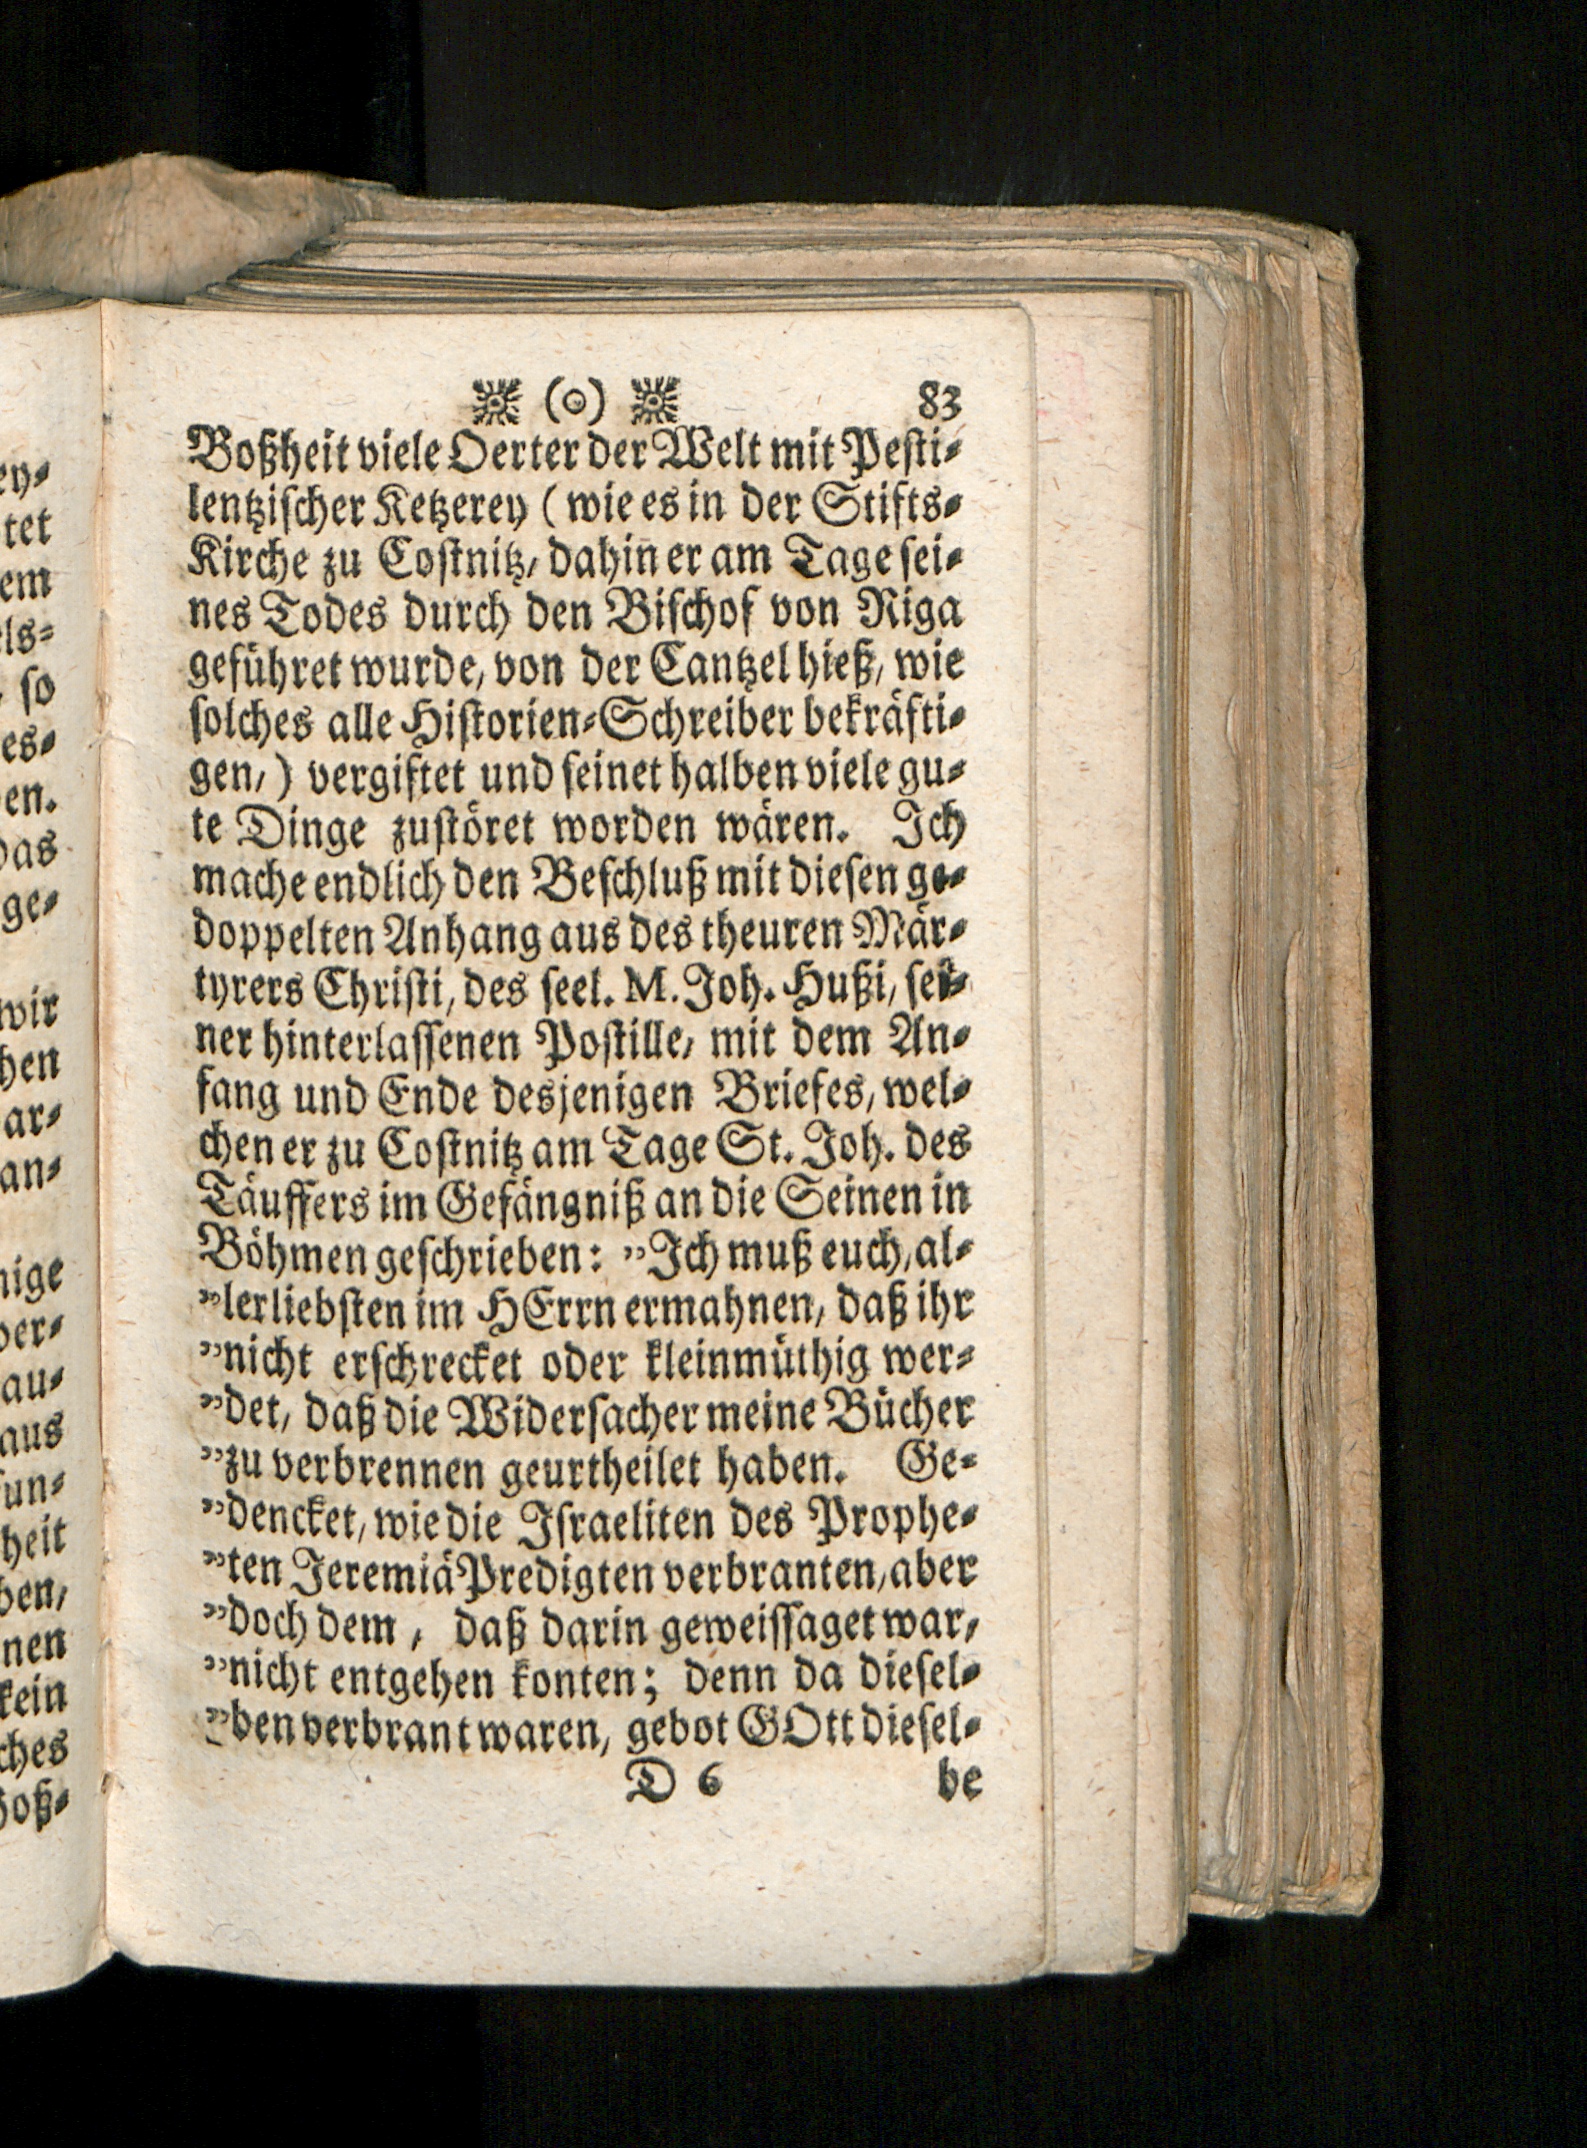 (o) 83
Boßheit viele Oerter der Welt mit Pesti-
lentzischer Ketzerey ( wie es in der Stifts-
Kirche zu Costnitz, dahin er am Tage sei-
nes Todes durch den Bischof von Riga
geführet wurde, von der Cantzel hieß, wie
solches alle Historien-Schreiber bekräfti-
gen,) vergiftet und seinet halben viele gu-
te Dinge zustöret worden wären. Ich
mache endlich den Beschluß mit diesen ge-
doppelten Anhang aus des theuren Mär-
tyrers Christi, des seel. M. Joh. Hußi, sei-
ner hinterlassenen Postille, mit dem An-
fang und Ende desjenigen Briefes, wel-
chen er zu Costnitz am Tage St. Joh. des
Täuffers im Gefängniß an die Seinen in
Böhmen geschrieben: „Ich muß euch, al-
„lerliebsten im HErrn ermahnen, daß ihr
„nicht erschrecket oder kleinmüthig wer-
„det, daß die Widersacher meine Bücher
„zu verbrennen geurtheilet haben. Ge-
„dencket, wie die Israeliten des Prophe-
„ten Jeremiä Predigten verbranten, aber
„doch dem, daß darin geweissaget war,
„nicht entgehen konten; denn da diesel-
„ben verbrant waren, gebot GOtt diesel-
D 6 be